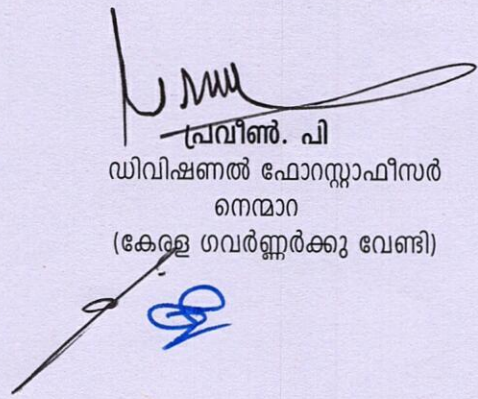 പ്രവീൺ. പി
ഡിവിഷണൽ ഫോറസ്റ്റാഫീസർ
നെന്മാറ
(കേരള ഗവർണ്ണർക്കു വേണ്ടി)